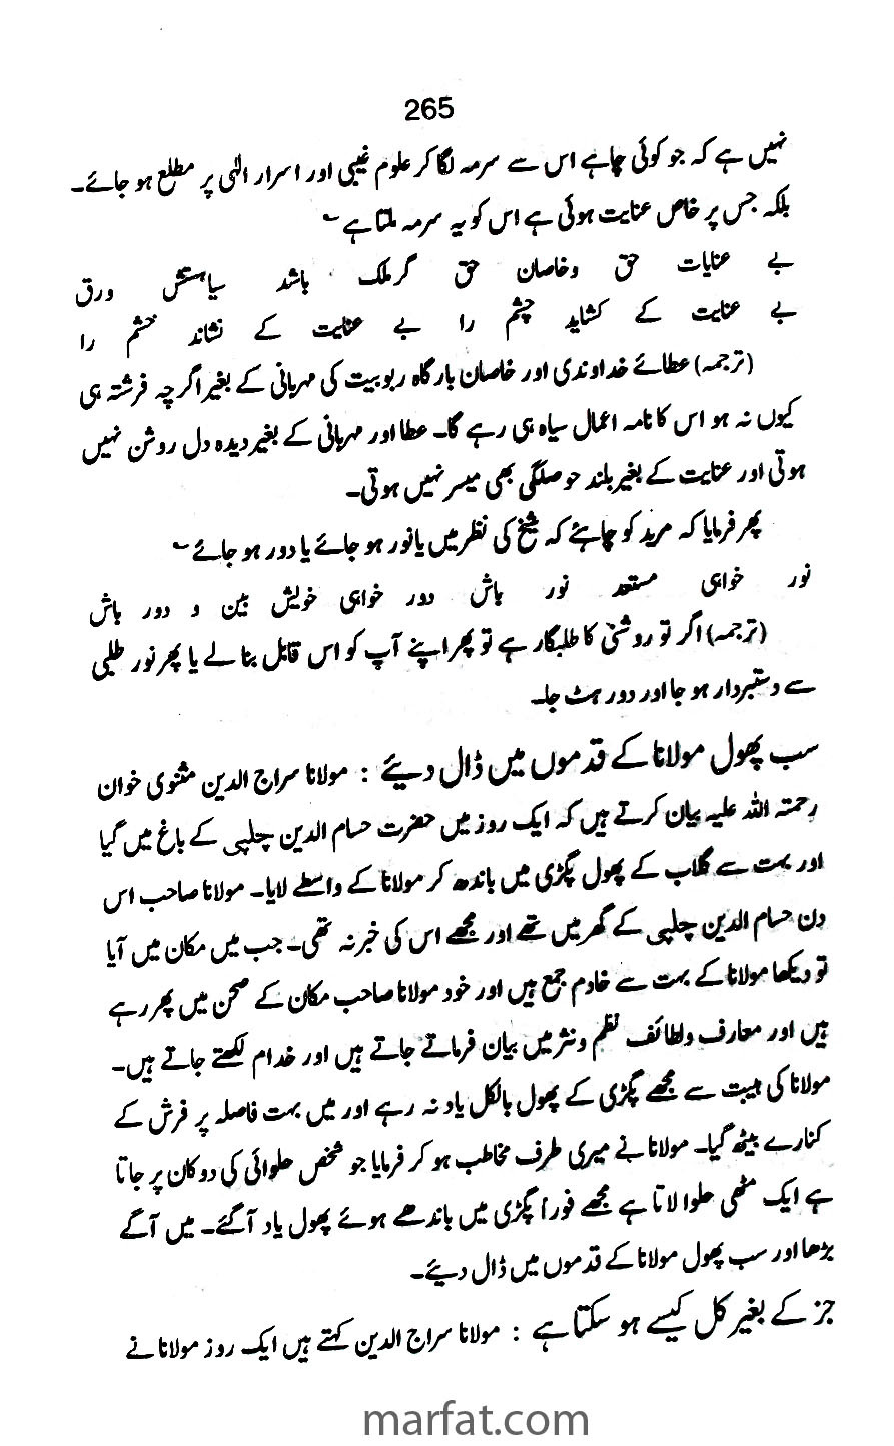 265
نہیں ہے کہ جو کوئی چاہے اس سے سرمہ لگا کر علوم غیبی اور اسرار الٰہی پر مطلع ہو جائے۔
بلکہ جس پر خاص عنایت ہوئی ہے اس کو یہ سرمہ ملتا ہے ؎
بے عنایات حق و خاصان حق گر ملک باشد سیاہستش ورق
بے عنایت کے کشاید چشم را بے عنایت کے نشاند خشم را
(ترجمہ) عطائے خداوندی اور خاصان بارگاہ ربوبیت کی مہربانی کے بغیر اگرچہ فرشتہ ہی
کیوں نہ ہو اس کا نامہ اعمال سیاہ ہی رہے گا۔ عطا اور مہربانی کے بغیر دیدہ دل روشن نہیں
ہوتی اور عنایت کے بغیر بلند حوصلگی بھی میسر نہیں ہوتی۔
پھر فرمایا کہ مرید کو چاہئے کہ شیخ کی نظر میں یا نور ہو جائے یا دور ہو جائے ؎
نور خواہی مستعد نور باش دور خواہی خویش بین و دور باش
(ترجمہ) اگر تو روشنی کا طلبگار ہے تو پھر اپنے آپ کو اس قابل بنا لے یا پھر نور طلبی
سے دستبردار ہو جا اور دور ہٹ جا۔
سب پھول مولانا کے قدموں میں ڈال دیئے : مولانا سراج الدین مثنوی خوان
رحمتہ اللہ علیہ بیان کرتے ہیں کہ ایک روز میں حضرت حسام الدین چلپی کے باغ میں گیا
اور بہت سے گلاب کے پھول پگڑی میں باندھ کر مولانا کے واسطے لایا۔ مولانا صاحب اس
دن حسام الدین چلپی کے گھر میں تھے اور مجھے اس کی خبر نہ تھی۔ جب میں مکان میں آیا
تو دیکھا مولانا کے بہت سے خادم جمع ہیں اور خود مولانا صاحب مکان کے صحن میں پھر رہے
ہیں اور معارف ولطائف نظم و نثر میں بیان فرماتے جاتے ہیں اور خدام لکھتے جاتے ہیں۔
مولانا کی ہیبت سے مجھے پگڑی کے پھول بالکل یاد نہ رہے اور میں بہت فاصلہ پر فرش کے
کنارے بیٹھ گیا۔ مولانا نے میری طرف مخاطب ہو کر فرمایا جو شخص حلوائی کی دوکان پر جاتا
ہے ایک مٹھی حلوا لاتا ہے مجھے فورا پگڑی میں باندھے ہوئے پھول یاد آگئے۔ میں آگے
بڑھا اور سب پھول مولانا کے قدموں میں ڈال دیئے۔
جز کے بغیر کل کیسے ہو سکتا ہے : مولانا سراج الدین کہتے ہیں ایک روز مولانا نے
marfat.com